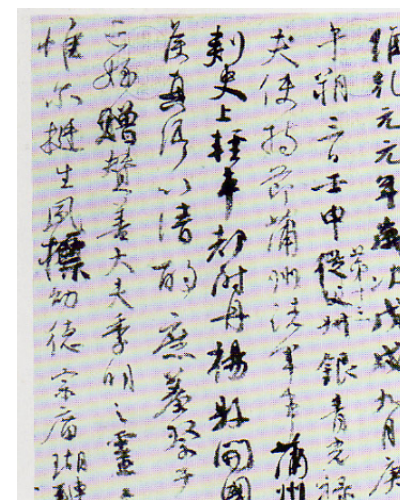 維乾元元年歲次戊戌九月庚
午朔三日壬申第十三從父叔銀青光祿
夫使持節蒲州諸軍事蒲州
刺史上輕車都尉丹楊縣開國
侯真卿以清酌庶羞祭于
亡姪贈贊善大夫季明之靈
惟爾挺生夙標幼德宗廟瑚璉